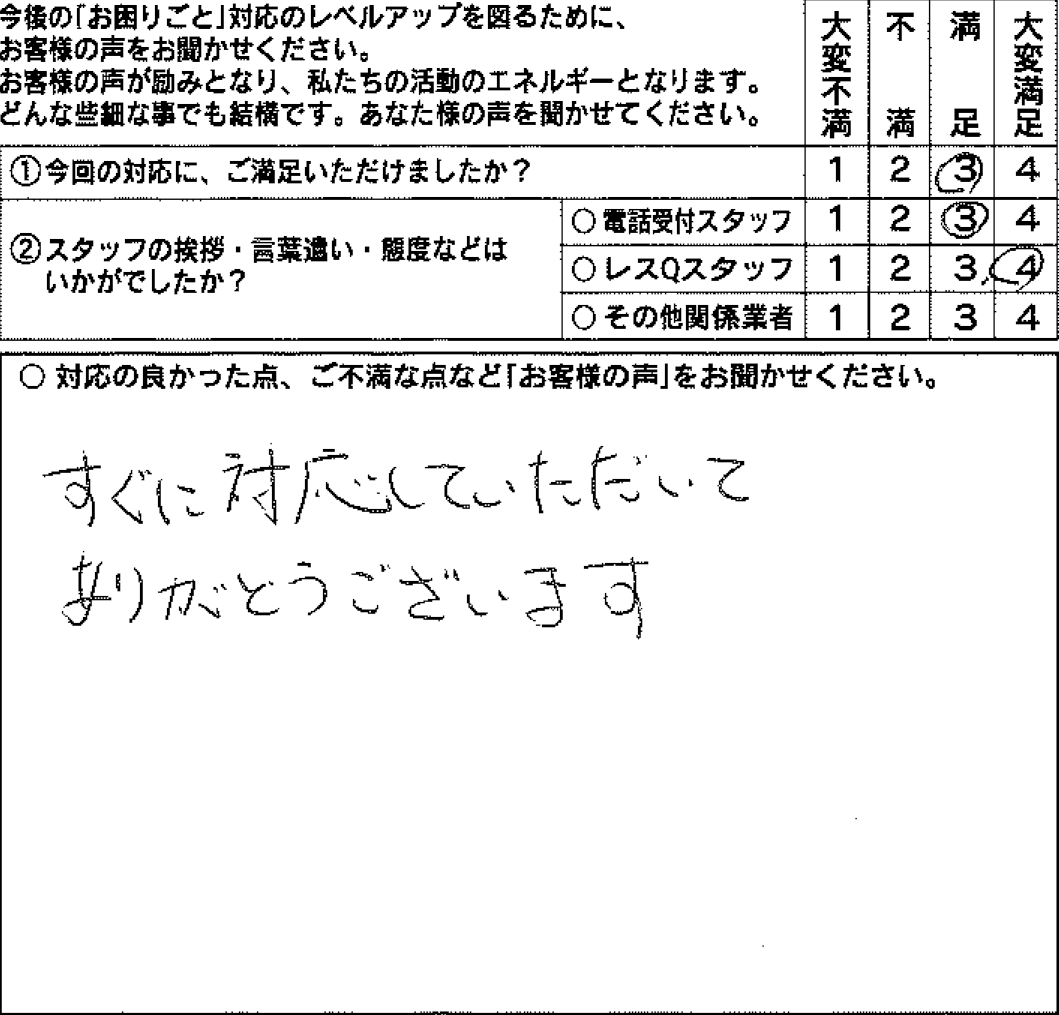 今後の「お困りごと」対応のレベルアップを図るために、
お客様の声をお聞かせください。
お客様の声が励みとなり、私たちの活動のエネルギーとなります。
どんな些細な事でも結構です。あなた様の声を聞かせてください。
大変不満 不満 満足 大変満足
①今回の対応に、ご満足いただけましたか？ 1 2 3 4
②スタッフの挨拶・言葉遣い・態度などは
いかがでしたか？
○電話受付スタッフ 1 2 3 4
○レスQスタッフ 1 2 3 4
○その他関係業者 1 2 3 4
○対応の良かった点、ご不満な点など「お客様の声」をお聞かせください。
すぐに対応していただいて
ありがとうございます